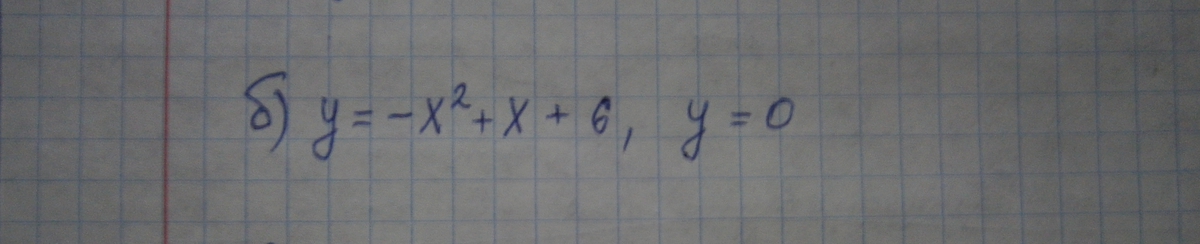 б) y = -x² + x + 6, y = 0